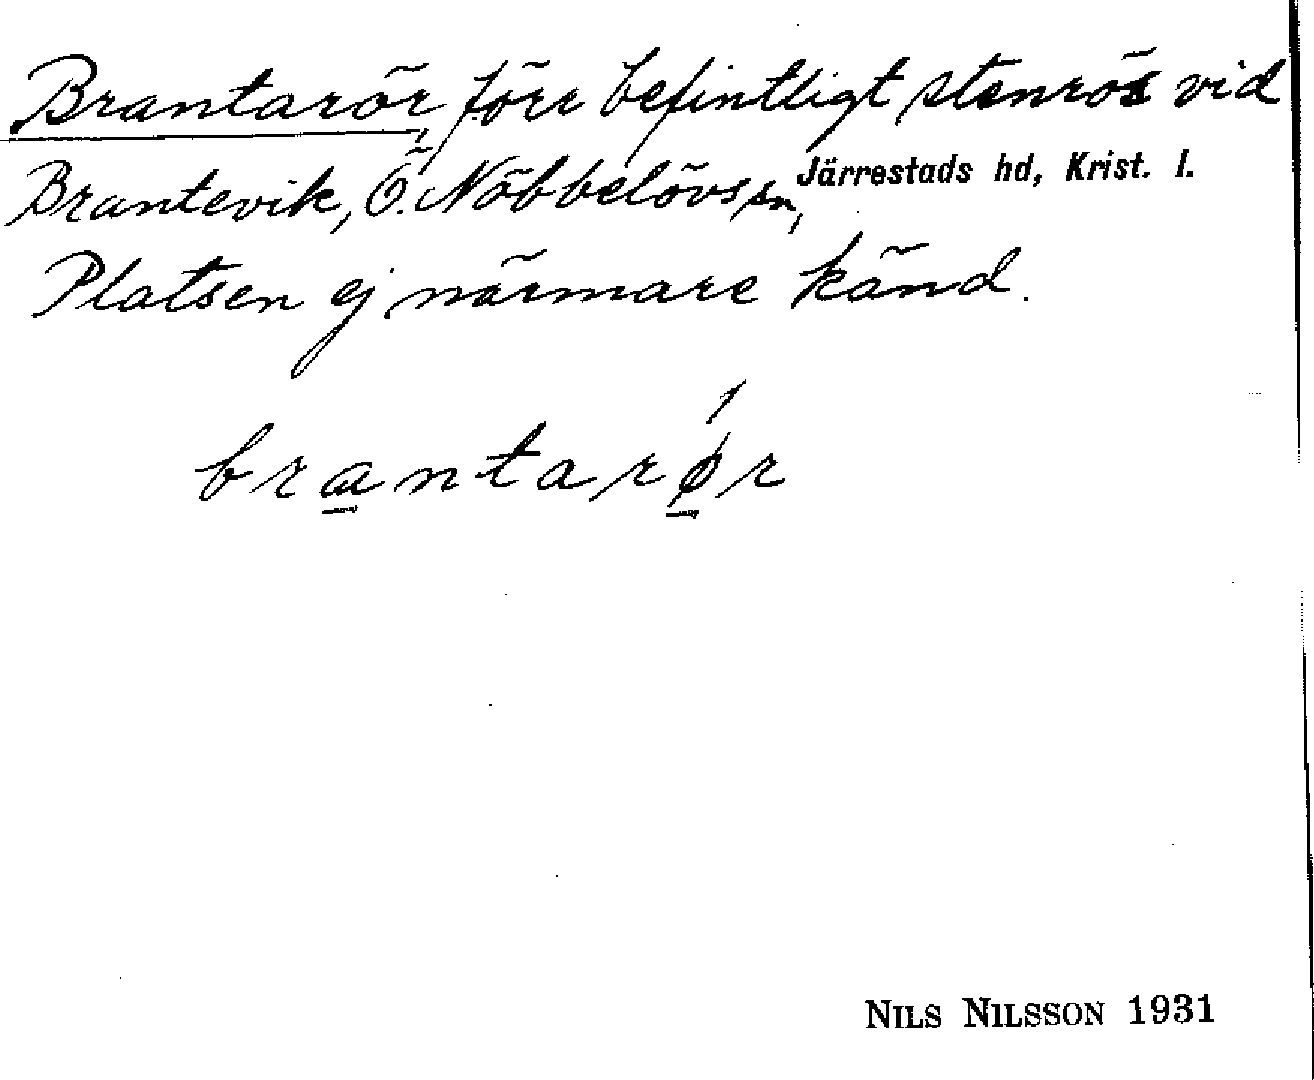 Brantarör, förr befintligt stenrös vid
Brantevik, Ö. Nöbbelövs sn, Järrestads hd, Krist. l.
Platsen ej närmare känd.
brantarǿr
NILS NILSSON 1931